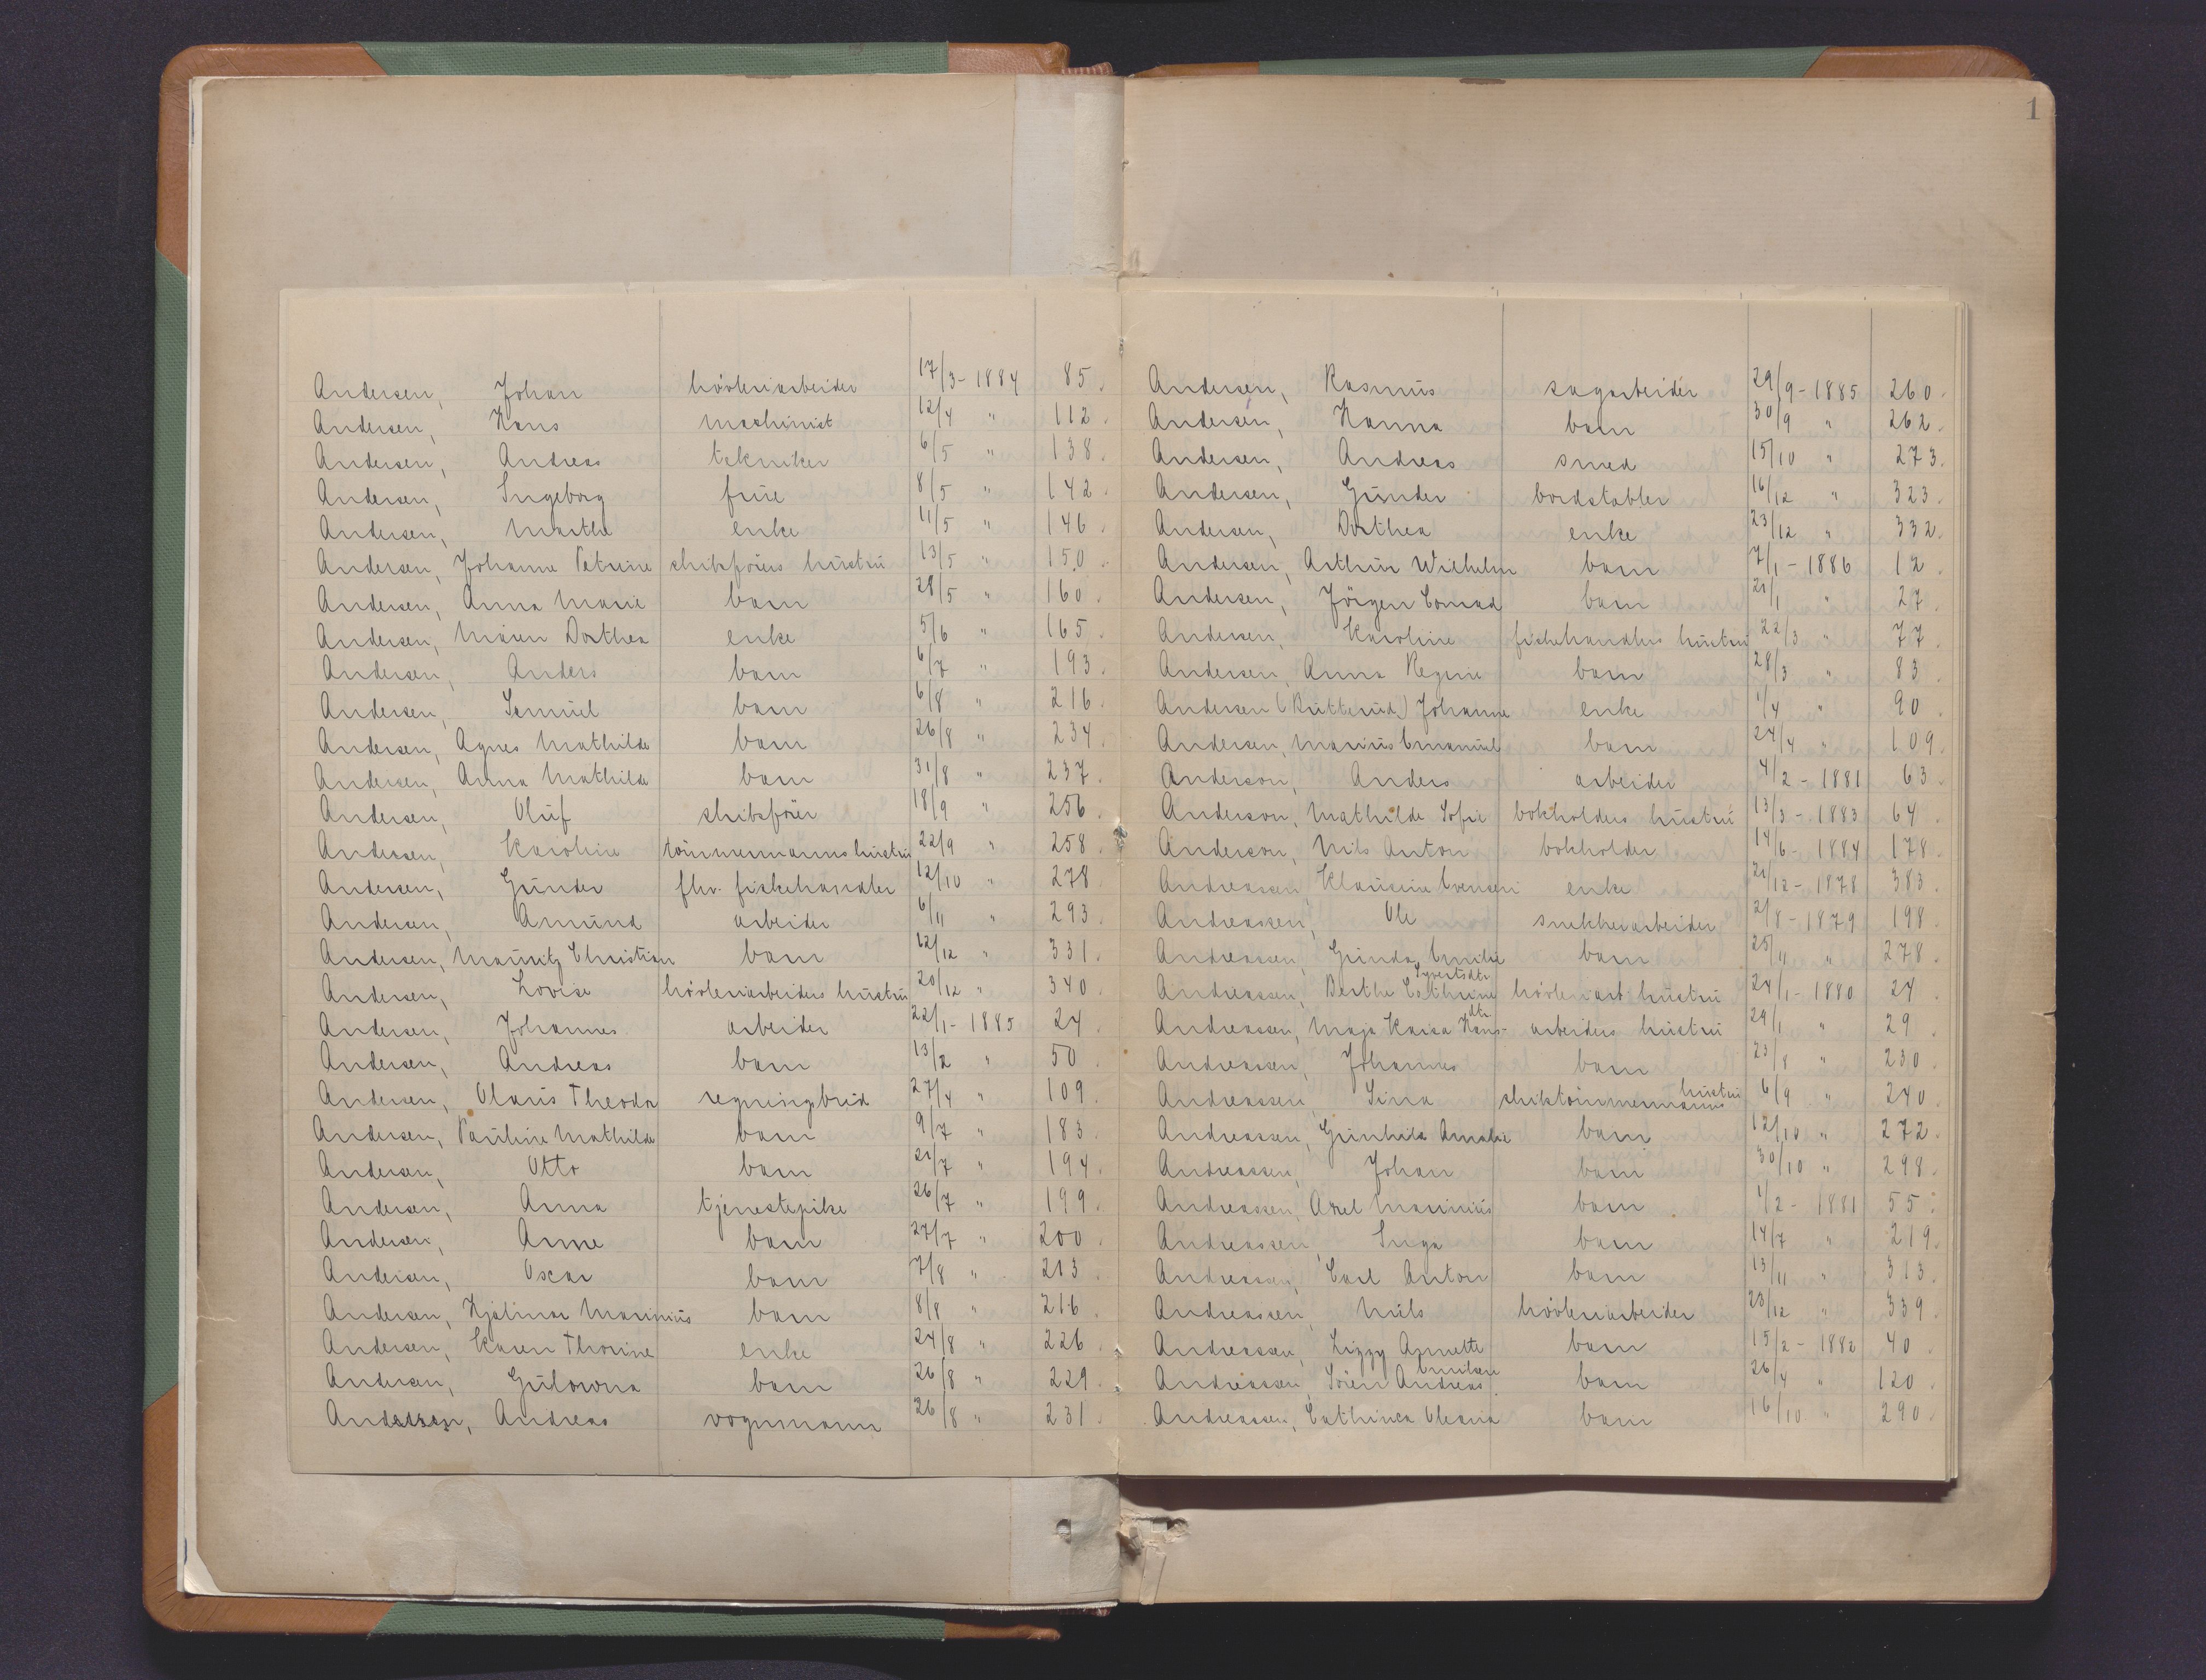 1
Andersen, Johan høvleriarbeider 17/3 - 1884 85.
Andersen, Hans maskinist 12/4 " 112.
Andersen, Andreas tekniker 6/5 " 138.
Andersen, Ingeborg frue 8/5 " 142.
Andersen, Marthe enke 11/5 " 146.
Andersen, Johanne Petrine skibsførers hustru 13/5 " 150.
Andersen, Anna Marie barn 28/5 " 160.
Andersen, Maren Dorthea enke 5/6 " 165.
Andersen, Anders barn 6/7 " 193.
Andersen, Samuel barn 6/8 " 216.
Andersen, Agnes Mathilde barn 26/8 " 234.
Andersen, Anna Mathilde barn 31/8 " 237.
Andersen, Oluf skibsfører 18/9 " 256.
Andersen, Karoline tømmermanns hustru 22/9 " 258.
Andersen, Gunder fhv. fiskehandler 12/10 " 278.
Andersen, Amund arbeider 6/11 " 293.
Andersen, Mauritz Christian barn 12/12 " 331.
Andersen, Lovise høvleriarbeiders hustru 20/12 " 340.
Andersen, Johannes arbeider 22/1 - 1885 24.
Andersen, Andreas barn 13/2 " 50.
Andersen, Olaus Theodor regningsbud 27/4 " 109.
Andersen, Pauline Mathilde barn 9/7 " 183.
Andersen, Otto barn 21/7 " 194.
Andersen, Anna tjenestepike 26/7 " 199.
Andersen, Anne barn 27/7 " 200.
Andersen, Oscar barn 7/8 " 213.
Andersen, Hjalmar Marinius barn 8/8 " 216.
Andersen, Karen Thorine enke 24/8 " 226.
Andersen, Gulowna barn 26/8 " 229.
Andersen, Andreas vognmann 26/8 " 231.
Andersen, Rasmus sagarbeider 29/9 - 1885 260.
Andersen, Hanna barn 30/9 " 262.
Andersen, Andreas smed 15/10 " 273.
Andersen, Gunder bordstabler 16/12 " 323.
Andersen, Dorthea enke 23/12 " 332.
Andersen, Arthur Wilhelm barn 7/1 - 1886 12.
Andersen, Jörgen Conrad barn 21/1 " 27.
Andersen, Karoline fiskehandlers hustru 22/3 " 77.
Andersen, Anna Regine barn 28/3 " 83.
Andersen (Rutterud) Johanne enke 1/4 " 90.
Andersen, Marius Emanuel barn 24/4 " 109.
Anderson, Anders arbeider 4/2 - 1881 63.
Anderson, Mathilde Sofie bokholders hustru 13/3 - 1883 64.
Anderson, Nils Anton bokholder 14/6 - 1884 178.
Andreassen, Klausine Evensen enke 21/12 - 1878 383.
Andreassen, Ole snekkerarbeider 2/8 - 1879 198.
Andreassen, Gunda Emilie barn 25/11 " 278.
Andreassen, Berthe Cathrine Syvertsdtr. høvleriarb. hustru 24/1 - 1880 24.
Andreassen, Maja Kaisa Hans-dtr. arbeiders hustru 29/1 " 29.
Andreassen, Johannes barn 23/8 " 230.
Andreassen, Sina skibstømmermanns hustru 6/9 " 240.
Andreassen, Gunhild Amalie barn 12/10 " 272.
Andreassen, Johan barn 30/10 " 298.
Andreassen, Axel Marinius barn 1/2 - 1881 55.
Andreassen, Inga barn 14/7 " 219.
Andreassen, Carl Anton barn 13/11 " 313.
Andreassen, Nils høvleriarbeider 23/12 " 339.
Andreassen, Lizzy Annette barn 15/2 - 1882 40.
Andreassen, Sören Andreas Emilson barn 26/4 " 120.
Andreassen, Cathinca Oleana barn 16/10 " 290.